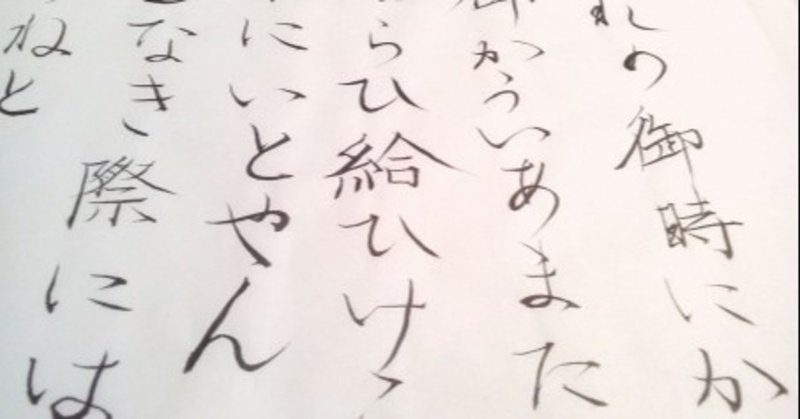 れの御時にか
御かういあまた
らひ給ひけ
にいとやん
なき際には
ねと